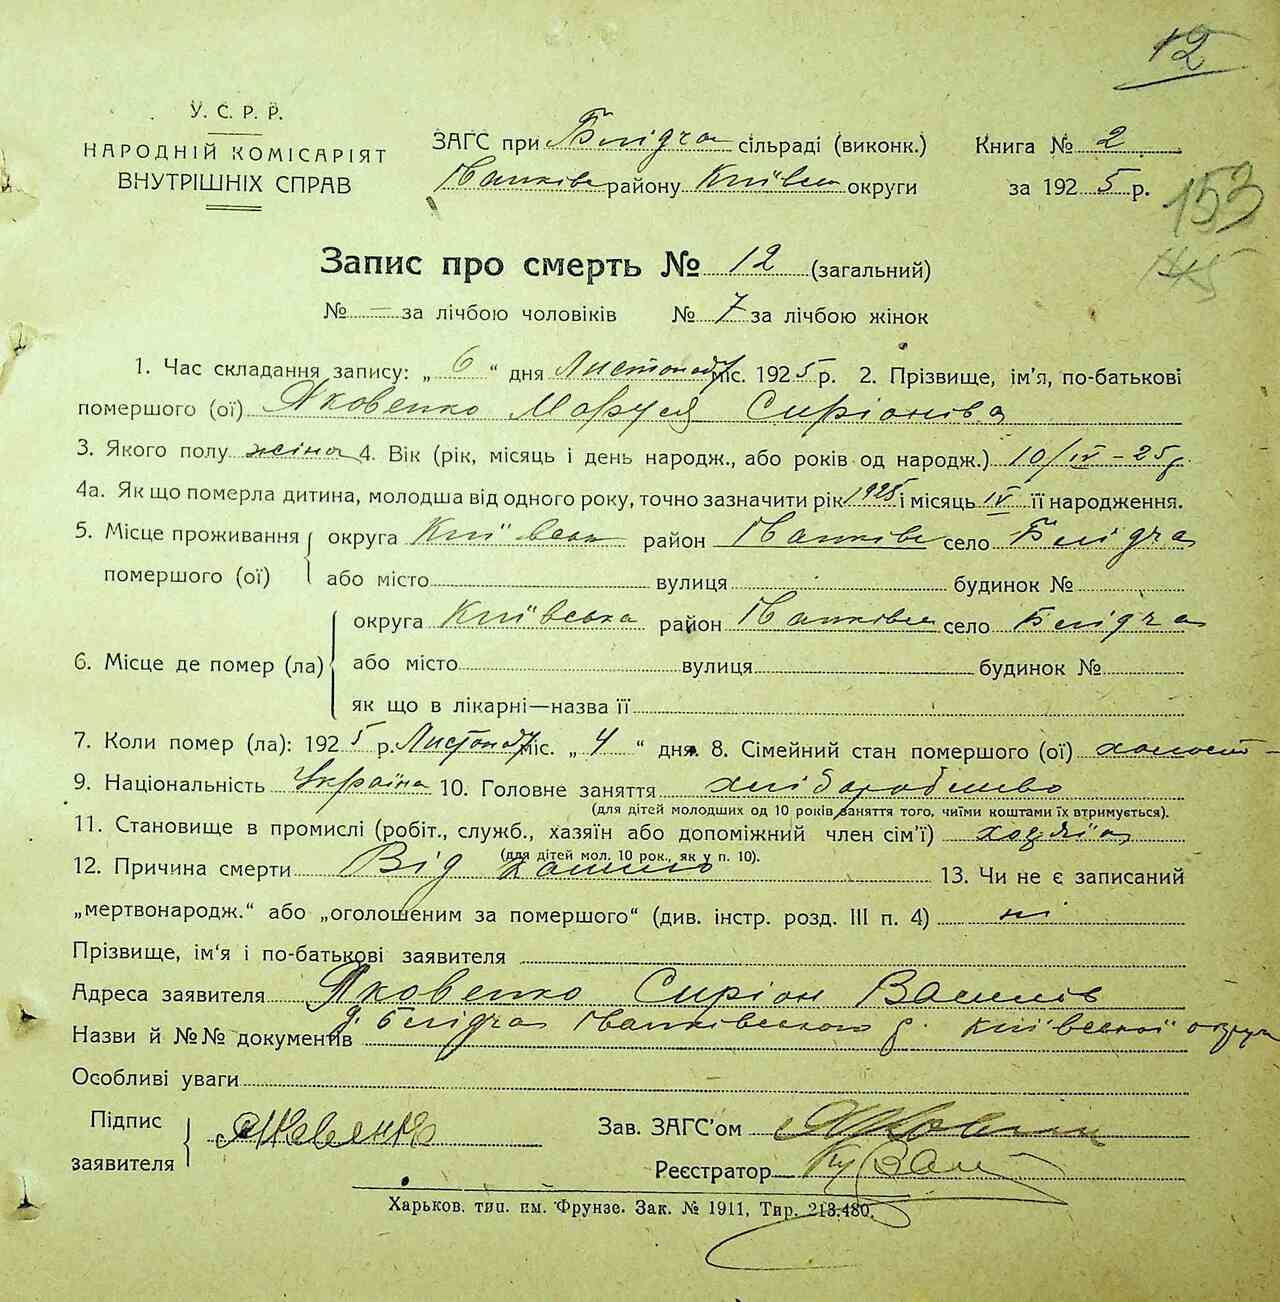 12
У. С. Р. Р.
НАРОДНІЙ КОМІСАРІЯТ
ВНУТРІШНІХ СПРАВ
ЗАГС при Білідча сільраді (виконк.)
Іванків району Київськ округи
Книга № 2
за 1925 р.
153
145
Запис про смерть № 12 (загальний)
№ — за лічбою чоловіків № 7 за лічбою жінок
1. Час складання запису: „ 6 “ дня Листопад міс. 1925 р. 2. Прізвище, ім'я, по-батькові
помершого (ої) Яковенко Маруся Сиріонівa
3. Якого полу жіноч 4. Вік (рік, місяць і день народж., або років од народж.) 10/IV – 25 р.
4а. Як що померла дитина, молодша від одного року, точно зазначити рік 1925 і місяць IV її народження.
5. Місце проживання помершого (ої) округа Київськ район Іванків село Білідча
або місто вулиця будинок №
6. Місце де помер (ла) округа Київська район Іванків село Білідча
або місто вулиця будинок №
як що в лікарні—назва її
7. Коли помер (ла): 1925 р. Листопад міс. „ 4 “ дня. 8. Сімейний стан помершого (ої) холост
9. Національність Україн 10. Головне заняття хліборобство
(для дітей молодших од 10 років заняття того, чиїми коштами їх втримується).
11. Становище в промислі (робіт., служб., хазяїн або допоміжний член сім'ї) хозяїн
(для дітей мол. 10 рок., як у п. 10).
12. Причина смерти Від кашлю 13. Чи не є записаний
„мертвонародж.“ або „оголошеним за помершого“ (див. інстр. розд. III п. 4) ні
Прізвище, ім'я і по-батькові заявителя
Адреса заявителя Яковенко Сиріон Васильів
д. Білідча Іванківського р. Київської округи
Назви й №№ документів
Особливі уваги
Підпис заявителя Яковенко
Зав. ЗАГС'ом
Реєстратор
Харьков. тип. им. Фрунзе. Зак. № 1911, Тир. 213.480.